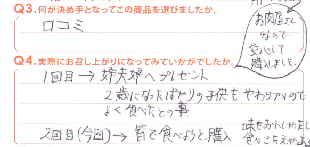 Q3.何が決め手となってこの商品を選びましたか。
口コミ
お肉屋さん
なので
安心して
購入しました。
Q4.実際にお召し上がりになってみていかがでしたか。
1回目→姉夫婦へプレゼント
2歳になったばかりの子供もやわらかいので
よく食べたとの事
2回目(今回)→皆で食べようと購入